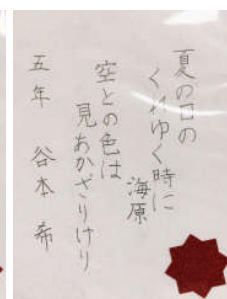 夏の日の
くれゆく時に
海原
空との色は
見あかざりけり
五年 谷本 希